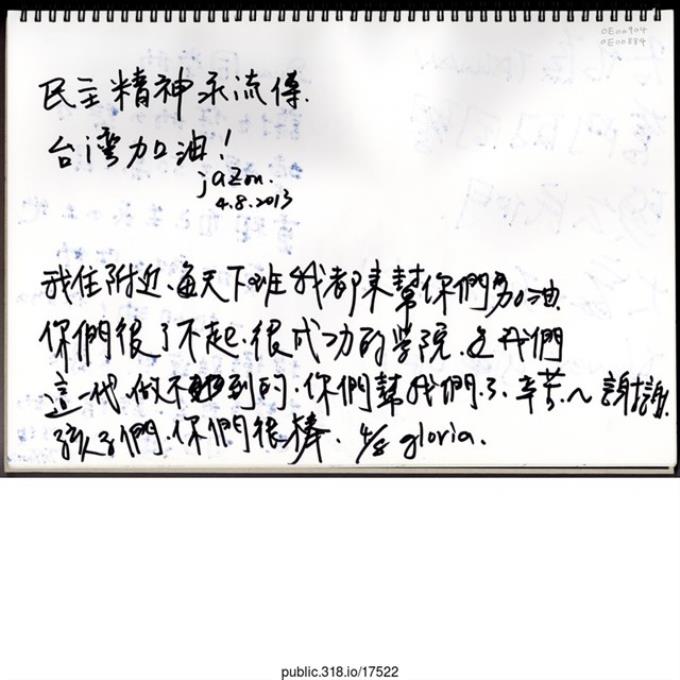 0E00904
0E00884
民主精神永流傳.
台灣加油!
jazon.
4.8.2013
我住附近.每天下班我都來幫你們加油
你們很了不起.很成功的學院.是我們
這一代.做不到的.你們幫我們了.辛苦~謝謝.
孩子們.你們很棒. 4/8 gloria.
public.318.io/17522